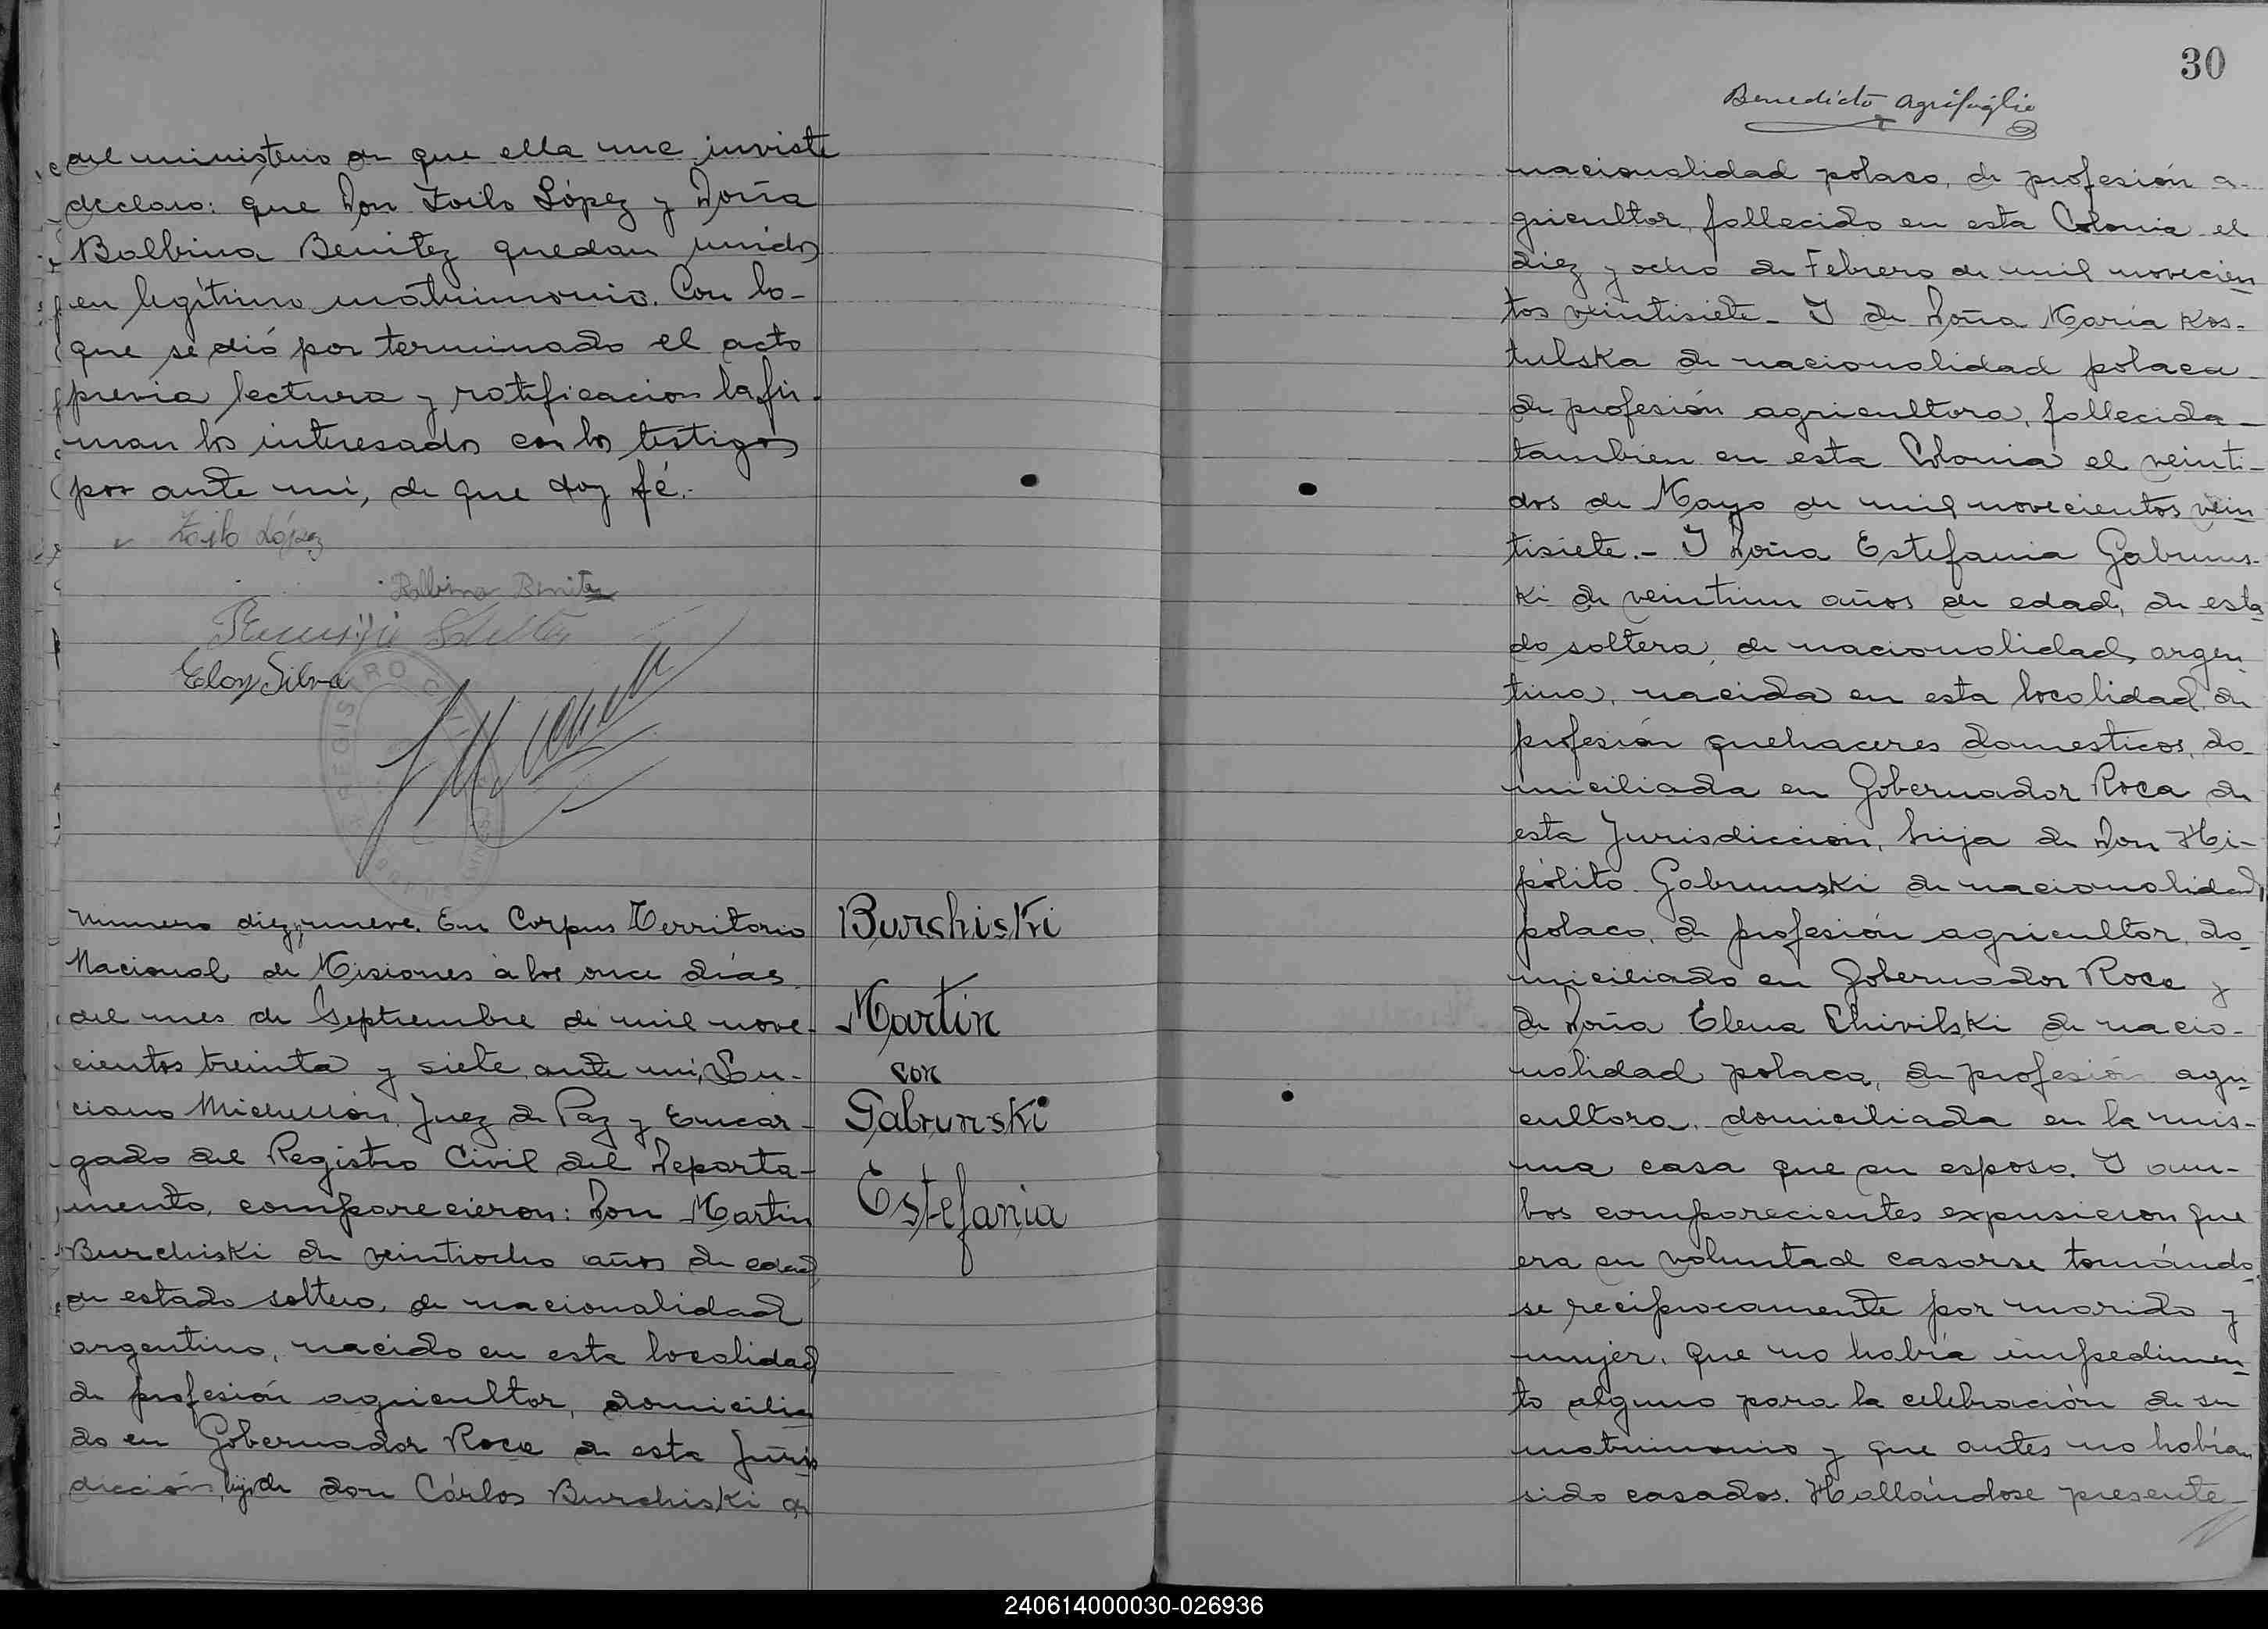 del ministerio de que ella me inviste
declaro: que Don Zoilo López y Doña
Balbina Benitez quedan unidos
en legítimo matrimonio. Con lo-
que se dió por terminado el acto
previa lectura y ratificacion la fir-
man los interesados con los testigos
por ante mi, de que doy fé.-
Zoilo López
Balbina Benitez
Eloy Silva
Numero diez y nueve. En Corpus Territorio
Nacional de Misiones à los once días
del mes de Septiembre de mil nove-
cientos treinta y siete, ante mi, Lu-
ciano Michellón, Juez de Paz y Encar-
gado del Registro Civil del Departa-
mento, comparecieron: Don Martin
Burchiski de veintiocho años de edad
de estado soltero, de nacionalidad
argentino, nacido en esta localidad
de profesión agricultor, domicilia
do en Gobernador Roca de esta Juris
dicción, hijo de don Cárlos Burchiski de
Burshiski
Martin
con
Gabrunski
Estefania
30
Benedicto Agrifoglio
nacionalidad polaco, de profesión a-
gricultor, fallecido en esta Colonia el
diez y ocho de Febrero de mil novecien
tos veintisiete_ I de Doña María Kos-
tulska de nacionalidad polaca_
de profesión agricultora, fallecida_
tambien en esta Colonia el veinti-
dos de Mayo de mil novecientos vein
tisiete.- I Doña Estefania Gabruns-
ki de veintiun años de edad, de esta
do soltera, de nacionalidad argen
tina, nacida en esta localidad, de
profesión quehaceres domesticos, do_
miciliada en Gobernador Roca de
esta Jurisdiccion, hija de Don Hi-
pólito Gabrunski de nacionalidad
polaco, de profesión agricultor, do_
miciliado en Gobernador Roca y
de Doña Elena Chivilski de nacio-
nalidad polaca, de profesión agri-
cultora, domiciliada en la mis-
ma casa que su esposo. I am-
bos comparecientes expusieron que
era su voluntad casarse tomándo
se recíprocamente por marido y
mujer, que no había impedimen
to alguno para la celebración de su
matrimonio y que antes no habían
sido casados. Hallándose presente_
240614000030-026936